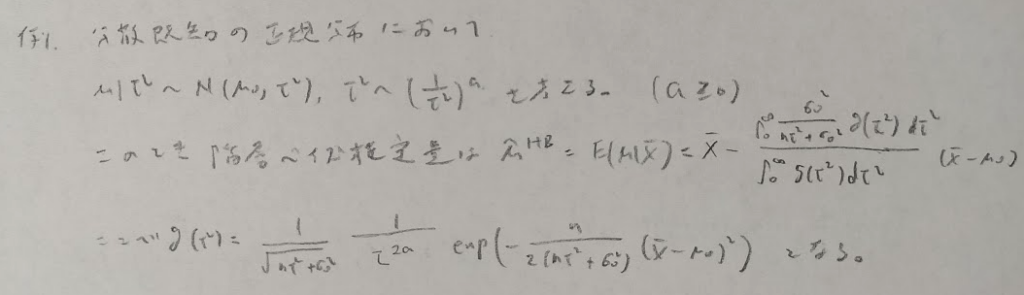 例1. 分散既知の正規分布において
μ|τ² ~ N(μ₀, τ²), τ² ~ (1/τ²)^a を考える。 (a≥0)
このとき階層ベイズ推定量は μ̂^HB = E(μ|x̄) = x̄ - ∫₀^∞ σ₀²/(nτ²+σ₀²) g(τ²) dτ² / ∫₀^∞ g(τ²)dτ² (x̄-μ₀)
ここで g(τ²) = 1/√(nτ²+σ₀²) 1/τ^2a exp(- n/2(nτ²+σ₀²) (x̄-μ₀)²) となる。